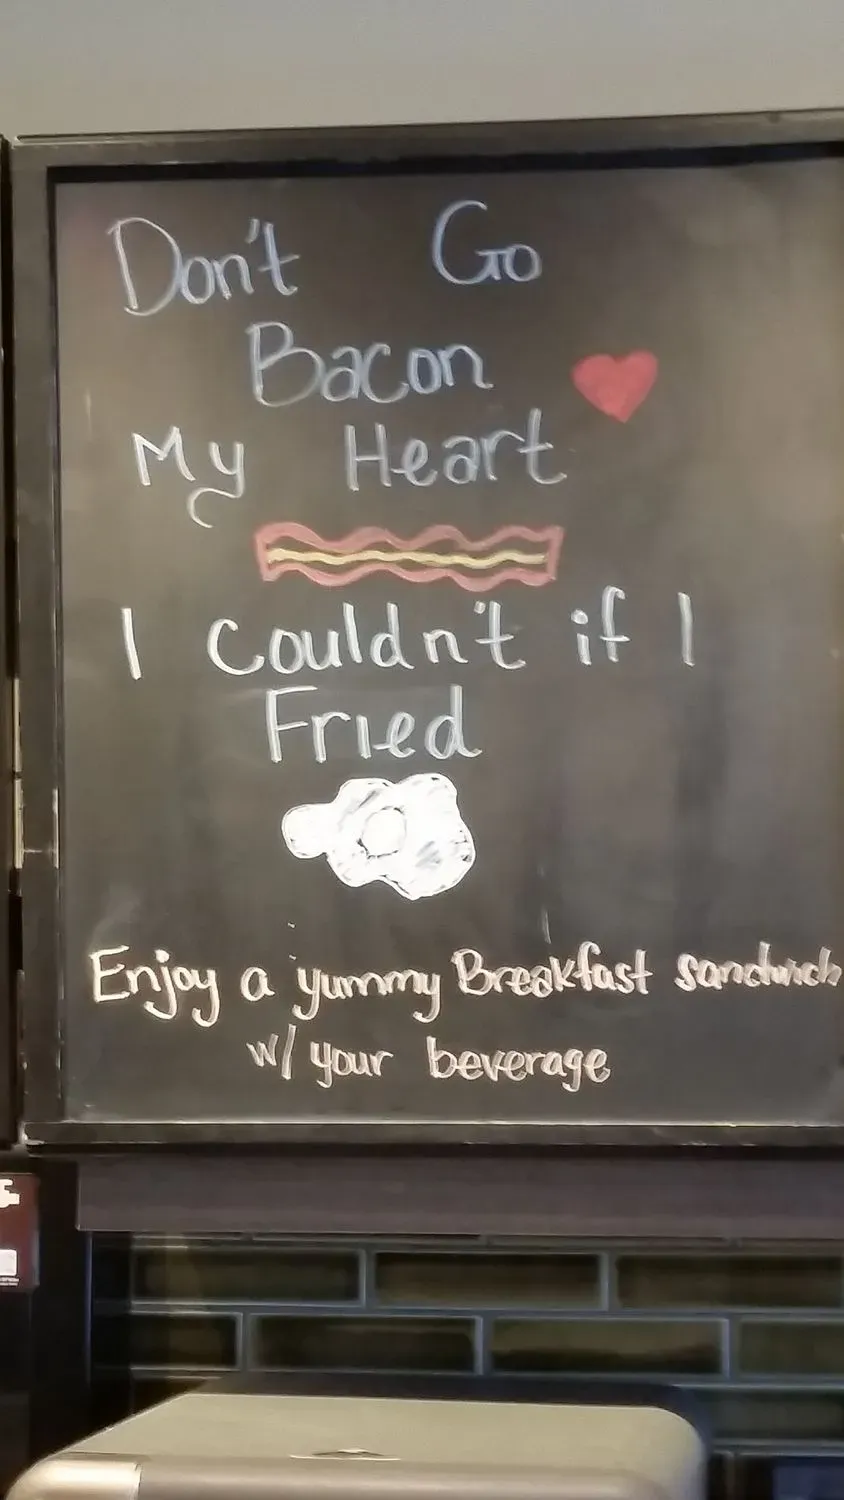 Don't Go
Bacon
My Heart
I Couldn't if I
Fried
Enjoy a yummy Breakfast sandwich
w/ your beverage